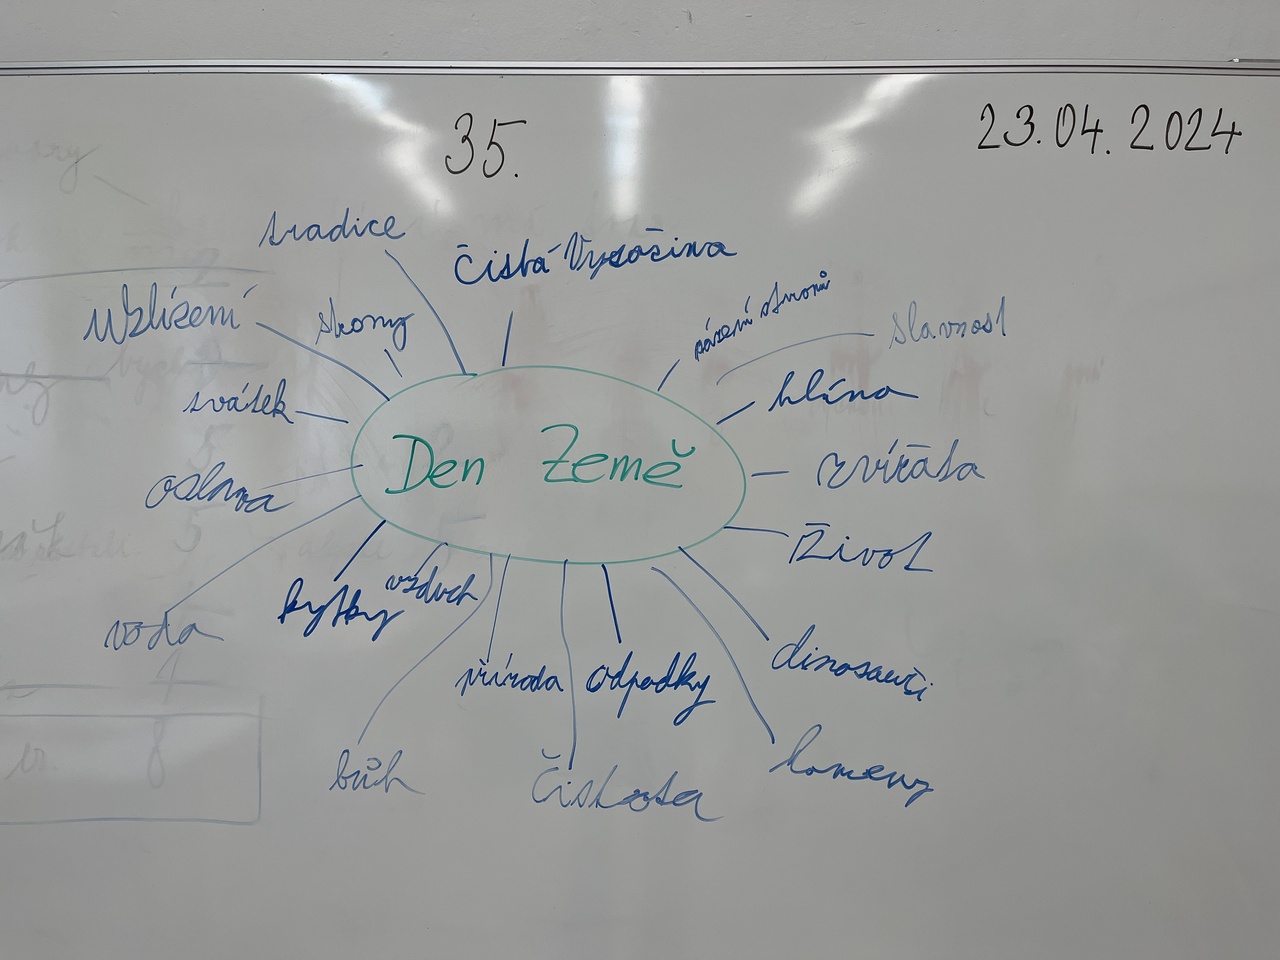 35.
23.04.2024
tradice
Čistá Vysočina
sázení stromů
slavnost
Uklízení
stromy
hlína
svátek
Den Země
zvířata
oslava
Život
kytky
vzduch
voda
příroda
odpadky
dinosauři
bůh
Čistota
kameny